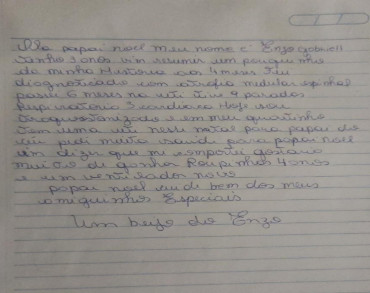 Ola papai noel meu nome e Enzo gabriell
tenho 3 anos vim resumir um pouquinho
da minha História aos 4 meses fui
diagnosticado com atrofia medular espinhal
passei 6 meses na uti tive 9 paradas
Respiratória 3 cardiaca Hoje sou
traqueostomizado e em meu quartinho
tem uma uti nesse natal para papai do
céu pedi muita saude para papai noel
um dizer que me
muito de ganhar Roupinhas 4 anos
e um ventilador novo
papai noel cuide bem dos meus
amiguinhos Especiais
Um beijo do Enzo